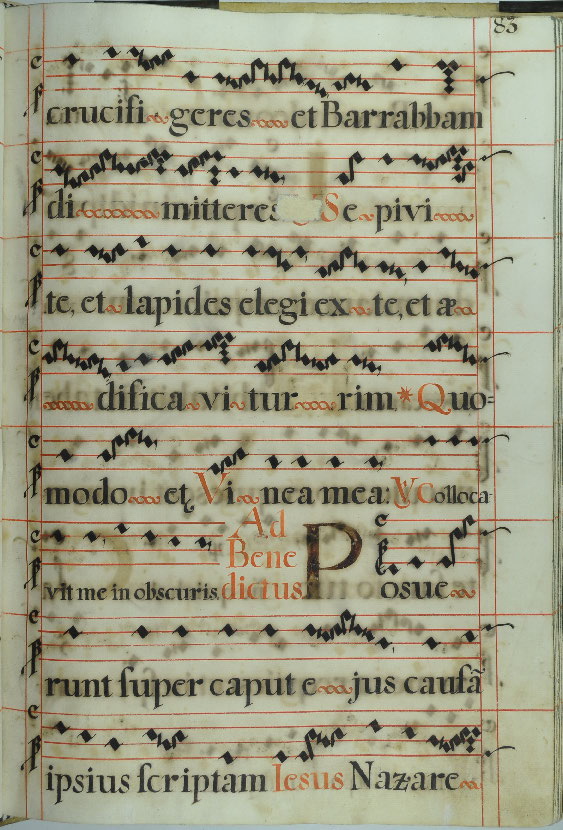 83
crucifi geres et Barrabbam
di mitteres Sepivi
te, et lapides elegi ex te, et æ
difica vi tur rim * Quo=
modo et Vi nea mea: ℣ Colloca-
Ad
Bene
vit me in obscuris dictus Posue
runt super caput e jus causã
ipsius scriptam Iesus Nazare